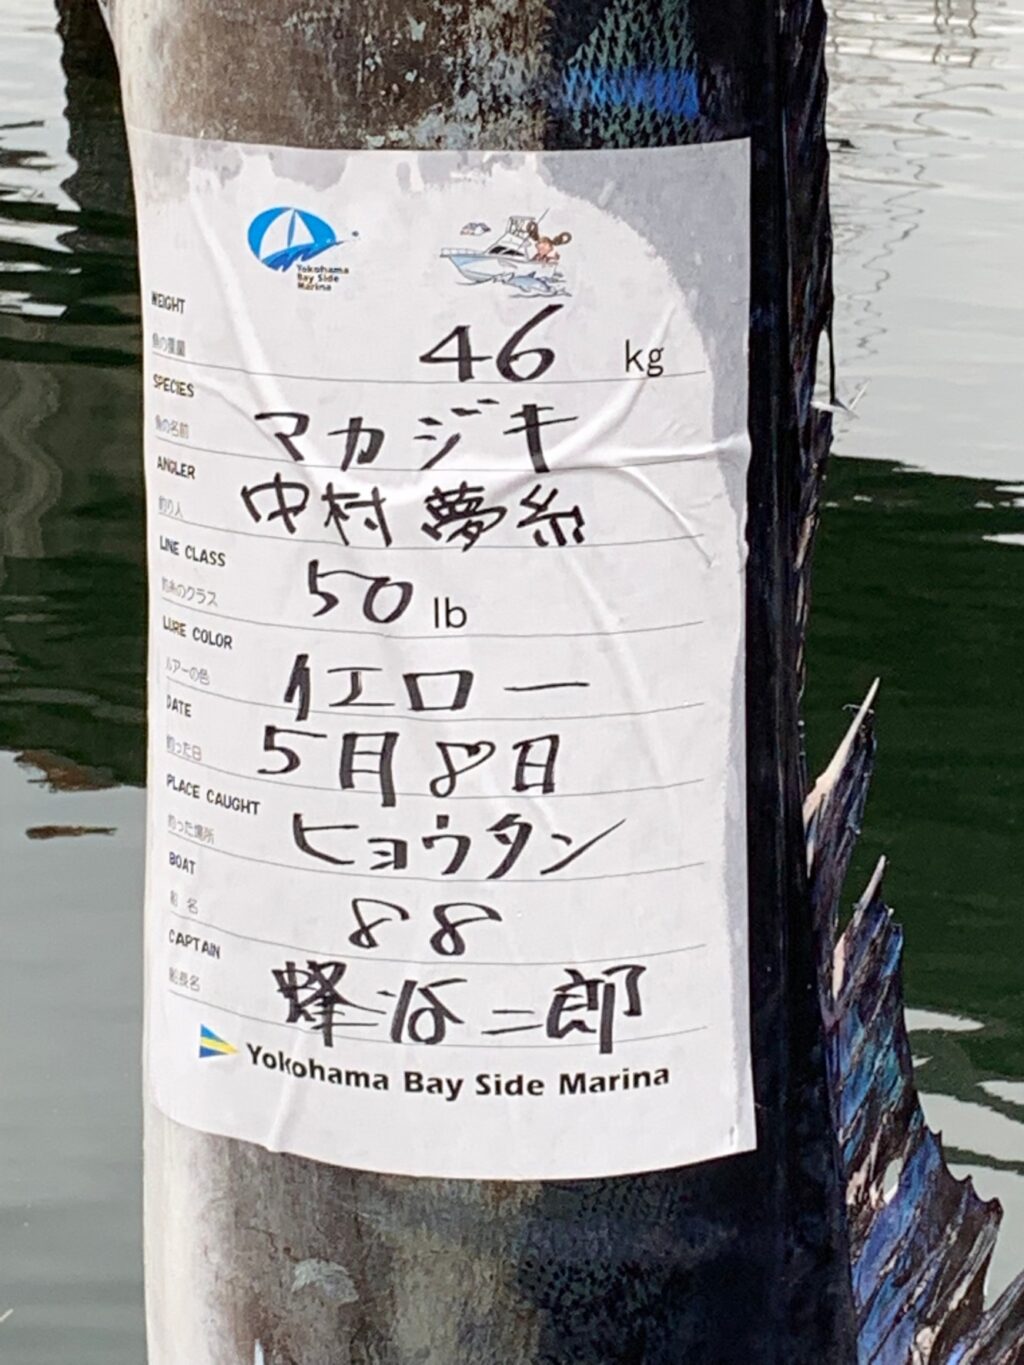 Yokohama
Bay Side
Marina
WEIGHT
魚の重量 46 kg
SPECIES
魚の名前 マカジキ
ANGLER
釣り人 中村 夢糸
LINE CLASS
釣糸のクラス 50 lb
LURE COLOR
ルアーの色 イエロー
DATE
釣った日 5月8日
PLACE CAUGHT
釣った場所 ヒョウタン
BOAT
船 名 88
CAPTAIN
船長名 蜂谷 二郎
Yokohama Bay Side Marina